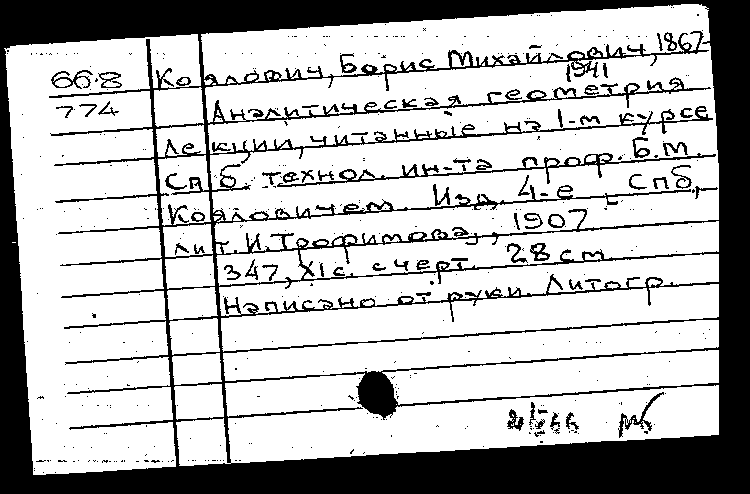 66·8 Коялович, Борис Михайлович, 1867-
1941
774 Аналитическая геометрия
Лекции, читанные на 1-м курсе
Спб. технол. ин-та проф. Б.М.
Кояловичем. Изд. 4-е - Спб,
лит. И. Трофимова, 1907
347, XI с. с черт. 28 см
Написано от руки. Литогр.